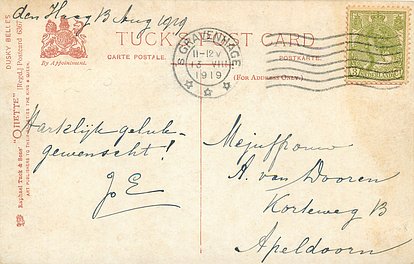 den Haag 13 Aug 1919
DUSKY BELLES
TUCK'S POST CARD
CARTE POSTALE.
POSTKARTE.
By Appointment.
(FOR ADDRESS ONLY.)
'S GRAVENHAGE
11-12 V
13 VIII
1919
NEDERLAND
Raphael Tuck & Sons' "OILETTE" [Regd.] Postcard
ART PUBLISHERS TO THEIR MAJESTIES THE KING & QUEEN.
Hartelijk geluk-
gewenscht!
Jo E
Mejuffrouw
A. van Dooren
Korteweg 13
Apeldoorn